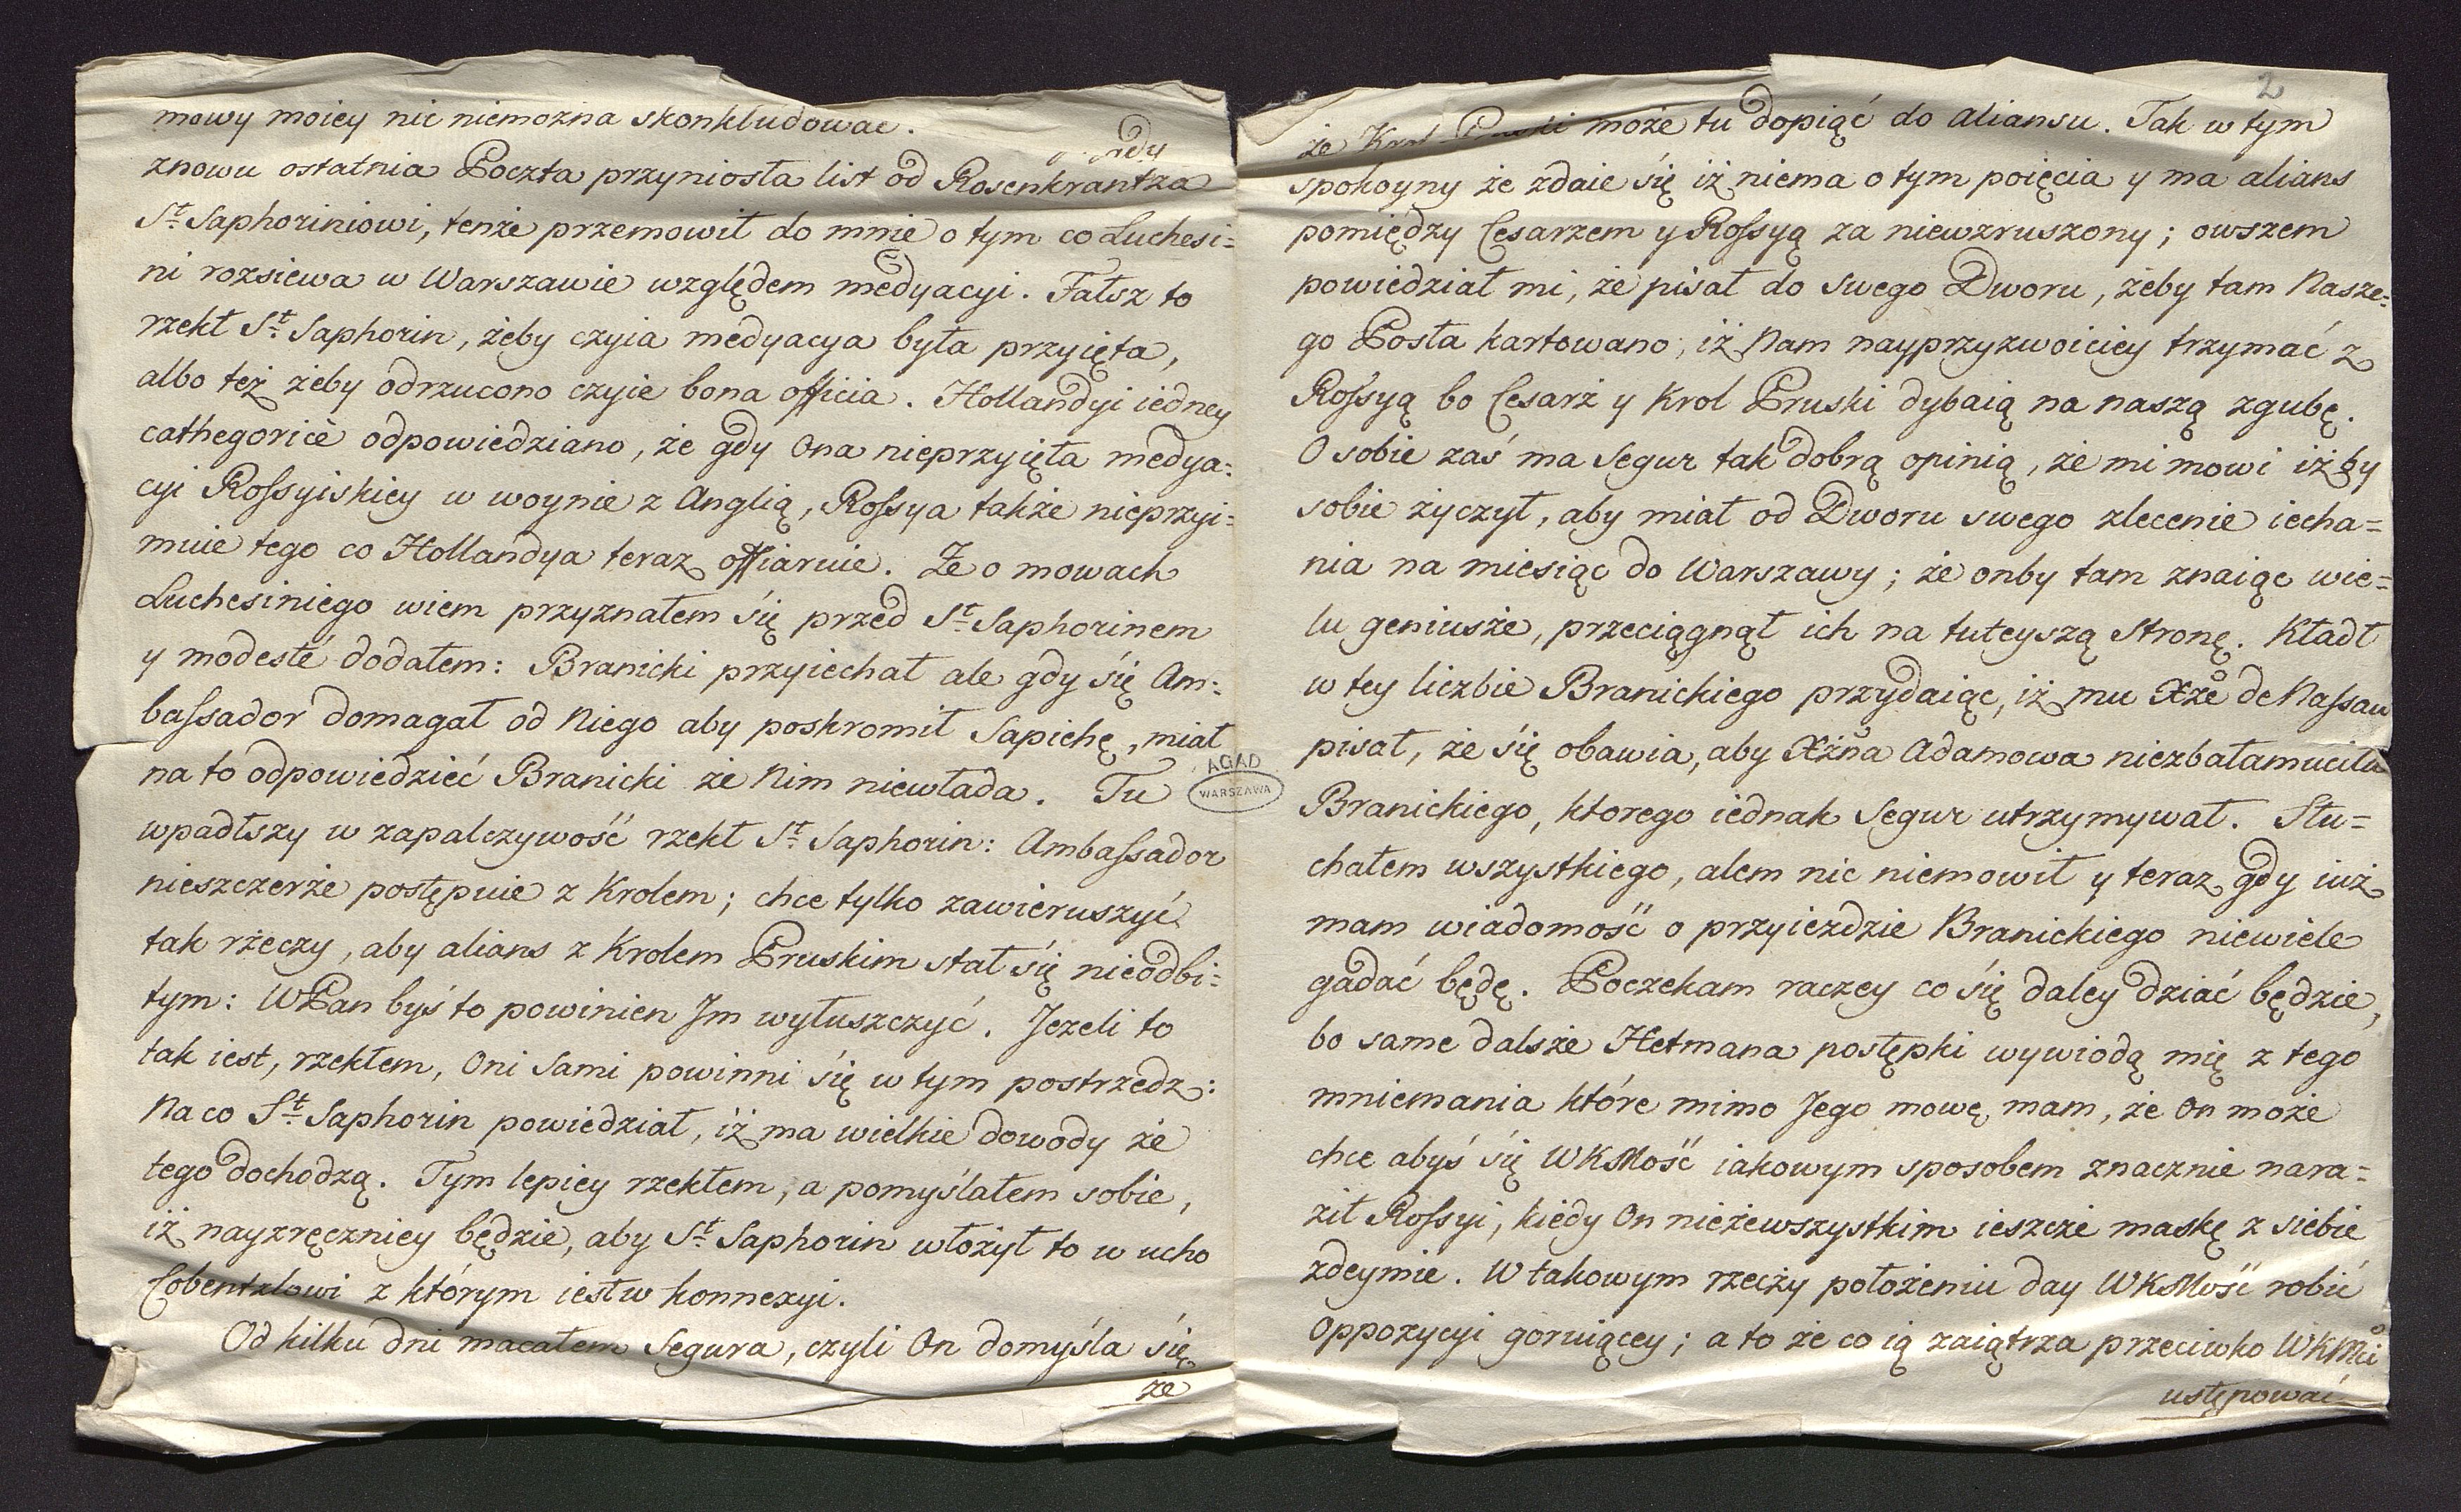 mowy moiey nic niemozna skonkludowac.
gdy
znowu ostatnia Poczta przyniosła list od Rosenkrantza
St. Saphoriniowi, tenże przemowił do mnie o tym co Luchesi=
ni rozsiewa w Warszawie względem medyacyi. Fałsz to
rzekł St. Saphorin, żeby czyia medyacya była przyięta,
albo też żeby odrzucono czyie bona officia. Hollandyi iedney
cathegoricè odpowiedziano, że gdy Ona nieprzyięła medya=
cyi Rossyiskiey w woynie z Anglią, Rossya także nieprzyi=
muie tego co Hollandya teraz offiaruie. Że o mowach
Luchesiniego wiem przyznałem się przed St. Saphorinem
y modestè dodałem: Branicki przyiechał ale gdy się Am=
bassador domagał od Niego aby poskromił Sapiehę, miał
na to odpowiedzieć Branicki że Nim niewłada. Tu
wpadłszy w zapalczywość rzekł St. Saphorin: Ambassador
nieszczerże postępuie z Krolem; chce tylko zawieruszyć
tak rżeczy, aby alians z Krolem Pruskim stał się nieodbi=
tym: WPan byś to powinien Jm wyłuszczyć. Jezeli to
tak iest, rzekłem, Oni Sami powinni się w tym postrzedz:
Na co St. Saphorin powiedział, iż ma wielkie dowody że
tego dochodzą. Tym lepiey rzekłem, a pomyślałem sobie,
iż nayzręczniey będzie, aby St. Saphorin włożył to w ucho
Cobentzlowi z którym iest w konnexyi.
Od kilku dni macałem Segura, czyli On domyśla się
że
2
że Krol Pruski może tu dopiąć do aliansu. Tak w tym
spokoyny że zdaie się iż niema o tym poięcia y ma alians
pomiędzy Cesarzem y Rossyą za niewzruszony; owszem
powiedział mi, że pisał do swego Dworu, żeby tam Nasze=
go Posła kartowano, iż Nam nayprzyzwoiciey trzymać z
Rossyą bo Cesarż y Krol Pruski dybaią na naszą zgubę.
O sobie zaś ma Segur tak dobrą opinią, że mi mowi iżby
sobie życzył, aby miał od Dworu swego zlecenie iecha=
nia na miesiąc do Warszawy; że onby tam znaiąc wie=
lu geniusże, przeciągnął ich na tuteyszą Stronę. Kładł
w tey liczbie Branickiego przydaiąc, iż mu Xże de Nassau
pisał, że się obawia, aby Xżna Adamowa niezbałamuciła
Branickiego, ktorego iednak Segur utrzymywał. Słu=
chałem wszystkiego, alem nic niemowił y teraz gdy iuż
mam wiadomość o przyieździe Branickiego niewiele
gadać będę. Poczekam raczey co się daley dziać będzie,
bo same dalsże Hetmana postępki wywiodą mię z tego
mniemania które mimo Jego mowę mam, że On może
chce abyś się WKsMość iakowym sposobem znacznie nara=
ził Rossyi, kiedy On nieżewszystkim ieszcże maskę z siebie
zdeymie. W takowym rzeczy położeniu day WKsMość robić
Oppozycyi goruiącey; a to że co ią zaiątrza przeciwko WKMci
ustępować